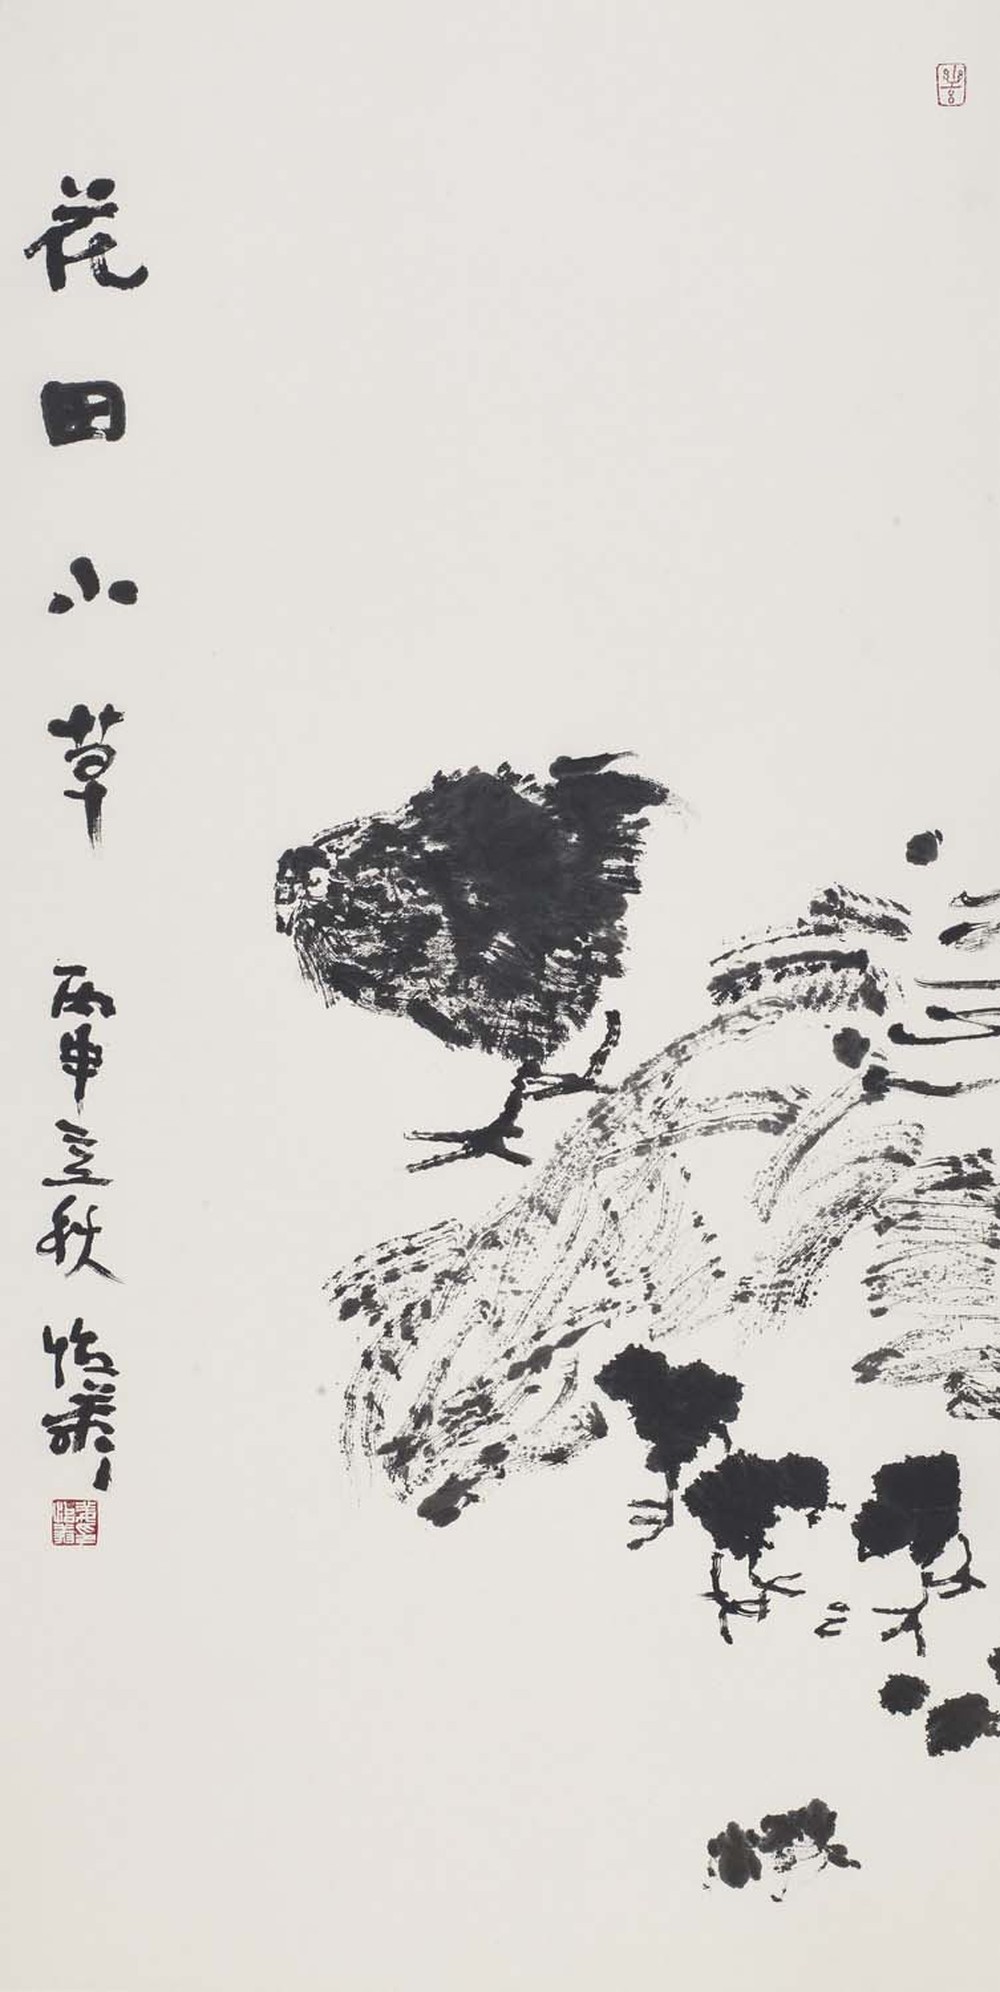 花田小草 丙申立秋